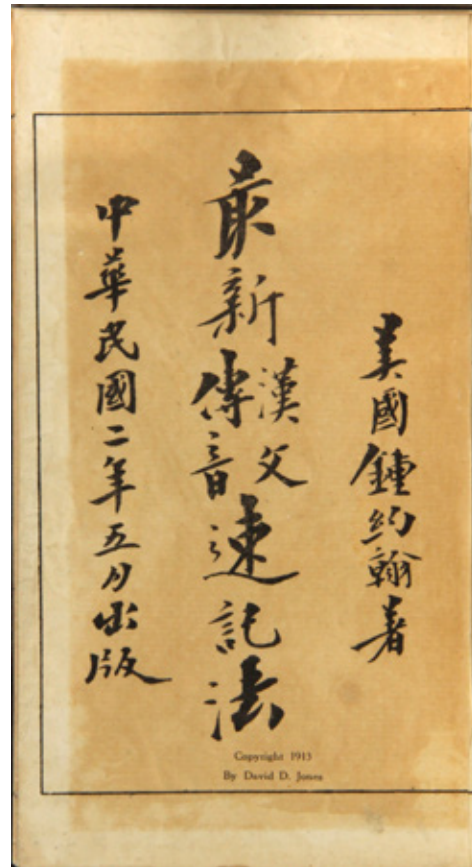 美國鍾約翰著
最新漢文傳音速記法
中華民國二年五月出版
Copyright 1913
By David D. Jones